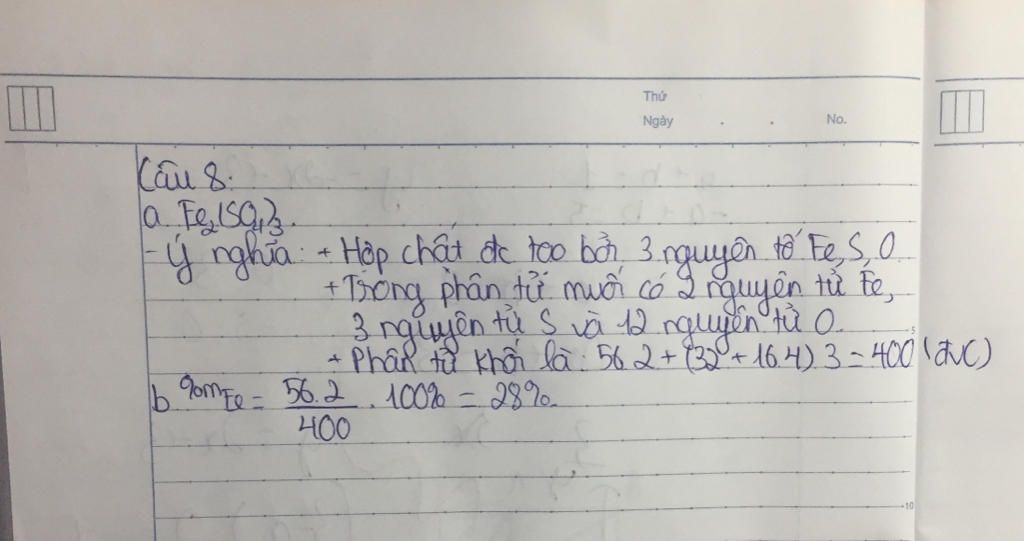 Thứ
Ngày . . No.
Câu 8:
a. Fe₂(SO₄)₃.
- Ý nghĩa: + Hợp chất đc tạo bởi 3 nguyên tố Fe, S, O.
+ Trong phân tử muối có 2 nguyên tử Fe,
3 nguyên tử S và 12 nguyên tử O.
+ Phân tử khối là: 56.2 + (32 + 16.4).3 = 400 (đvC)
b %mFe = 56.2/400 . 100% = 28%.
5
10